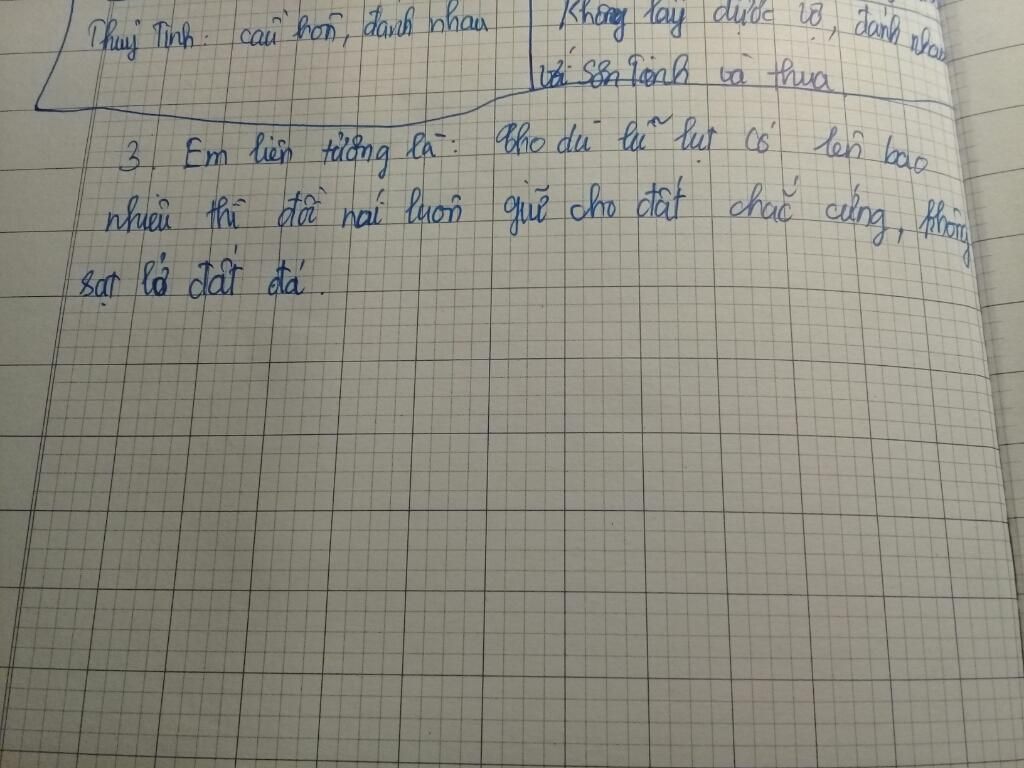 Thuỷ Tinh: cầu hôn, đánh nhau
Không lấy được vợ, đánh nhau
với Sơn Tinh và thua
3. Em liên tưởng là: Cho dù lũ lụt có lên bao
nhiêu thì đồi núi luôn giữ cho đất chắc cứng, không
sạt lở đất đá.